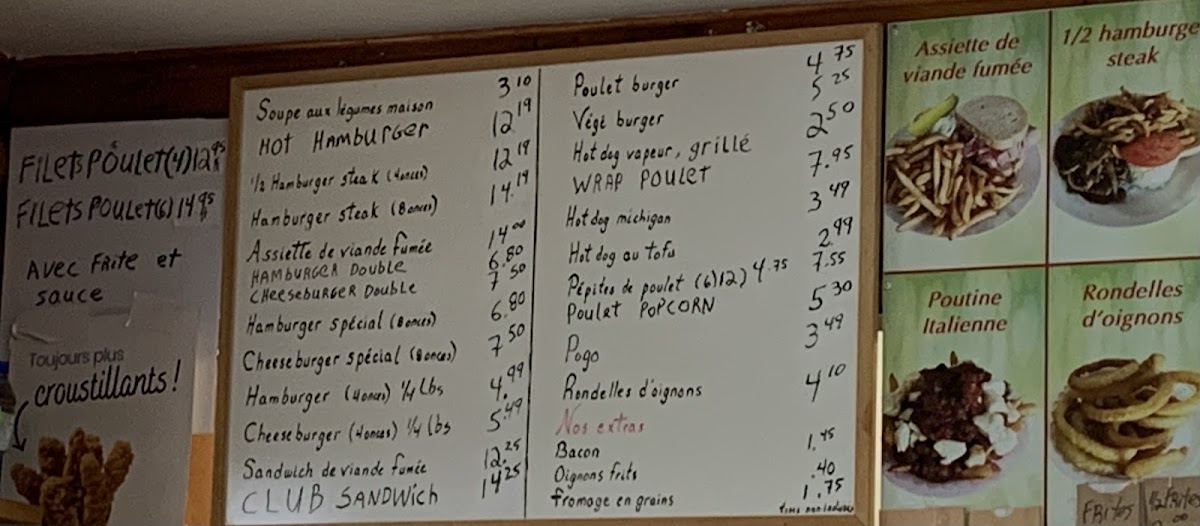 FILETS POULET(4) 12.95
FILETS POULET(6) 14.95
AVEC FRITE et
sauce
Toujours plus
croustillants!
Soupe aux légumes maison 3.10
HOT HAMBURGER 12.19
1/2 Hamburger steak (4onces) 12.19
Hamburger steak (8onces) 14.19
Assiette de viande fumée 14.00
HAMBURGER DOUBLE 6.80
CHEESEBURGER DOUBLE 7.50
Hamburger spécial (8onces) 6.80
Cheeseburger spécial (8onces) 7.50
Hamburger (4onces) 1/4 lbs 4.99
Cheeseburger (4onces) 1/4 lbs 5.49
Sandwich de viande fumée 12.25
CLUB SANDWICH 14.25
Poulet burger 4.75
Végé burger 5.25
Hot dog vapeur, grillé 2.50
WRAP POULET 7.95
Hot dog michigan 3.49
Hot dog au tofu 2.99
Pépites de poulet (6)(12) 4.75 7.55
Poulet POPCORN 5.30
Pogo 3.49
Rondelles d'oignons 4.10
Nos extras
Bacon 1.45
Oignons frits .40
fromage en grains 1.75
taxes non incluses
Assiette de
viande fumée
1/2 hamburger
steak
Poutine
Italienne
Rondelles
d'oignons
FRITES
1/2 FRITES